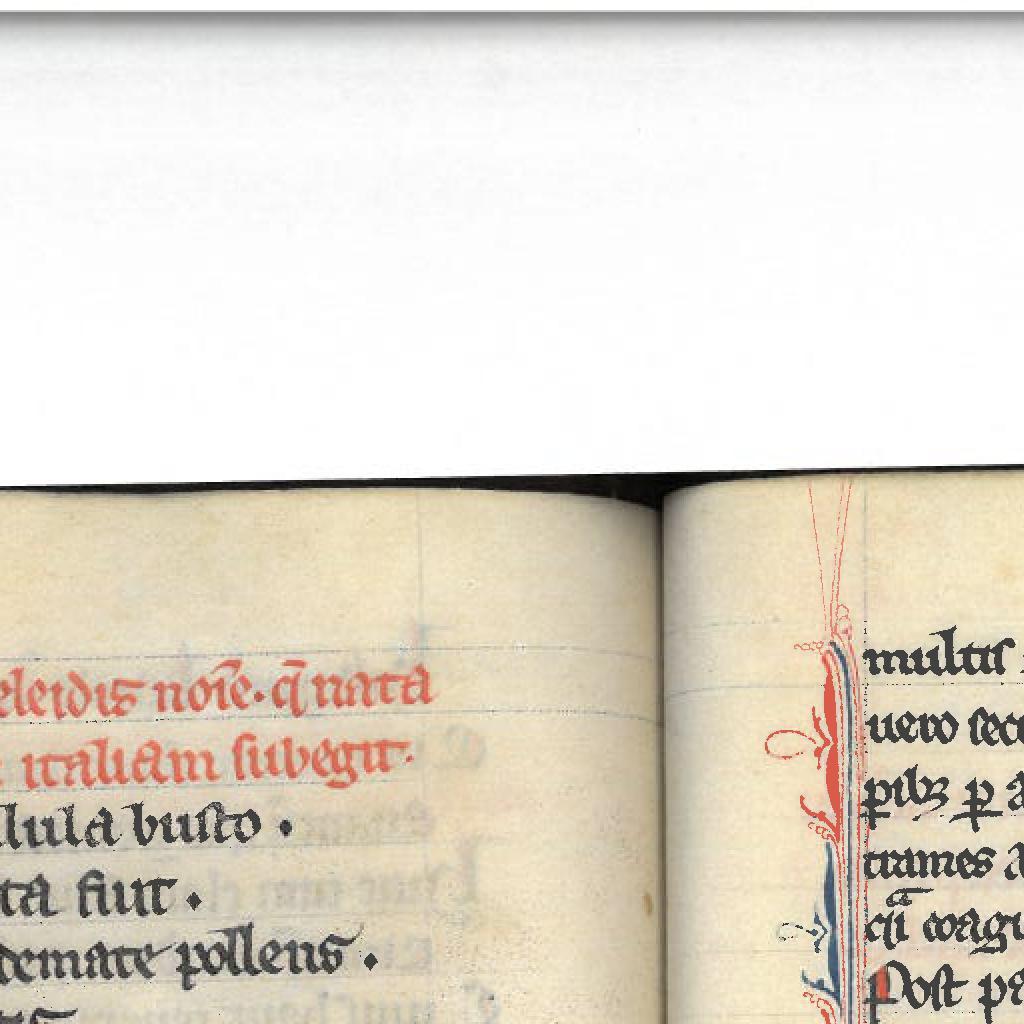 eleidis noīe. q̄ nata
italiam subegit.
llula busto .
ta fuit .
demate pollens .
multis
uero secu
pibꝫ ꝑ a
trames a
coagu
Post pa